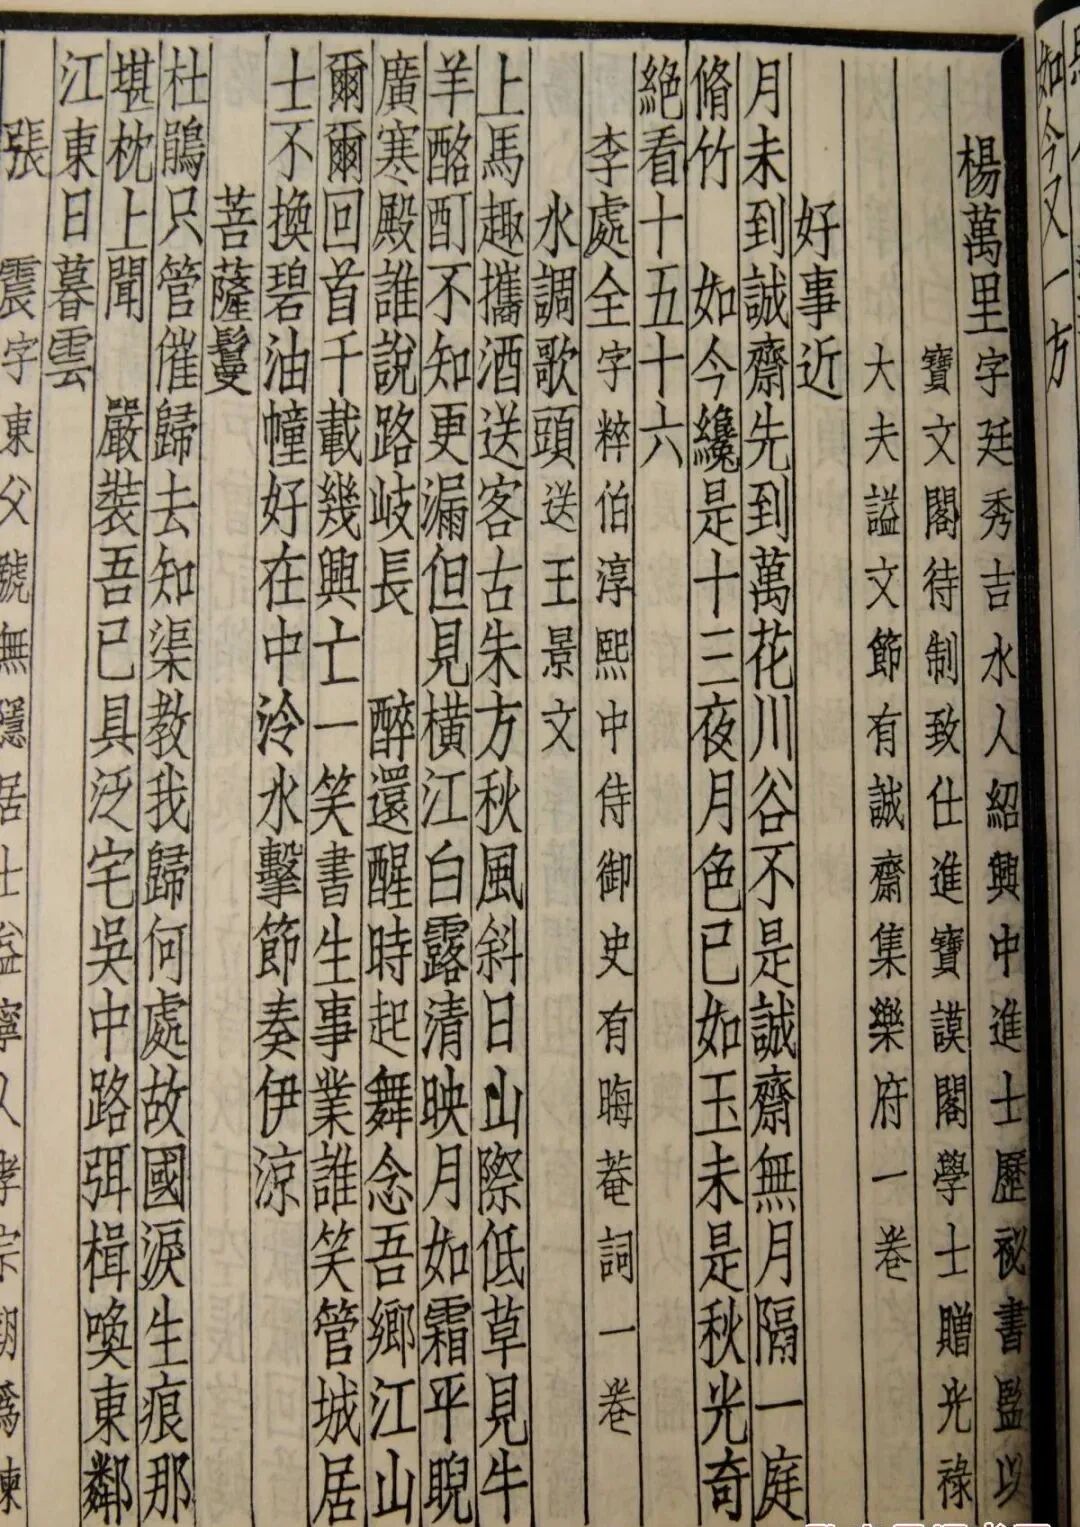 如今又一方
楊萬里字廷秀吉水人紹興中進士歷祕書監以
寶文閣待制致仕進寶謨閣學士贈光祿
大夫謚文節有誠齋集樂府一卷
好事近
月未到誠齋先到萬花川谷不是誠齋無月隔一庭
脩竹 如今纔是十三夜月色已如玉未是秋光奇
絶看十五十六
李處全字粹伯淳熙中侍御史有晦菴詞一卷
水調歌頭送王景文
上馬趣攜酒送客古朱方秋風斜日山際低草見牛
羊酩酊不知更漏但見橫江白露清映月如霜平睨
廣寒殿誰說路岐長 醉還醒時起舞念吾鄉江山
爾爾回首千載幾興亡一笑書生事業誰笑管城居
士不換碧油幢好在中泠水擊節奏伊涼
菩薩鬘
杜鵑只管催歸去知渠教我歸何處故國淚生痕那
堪枕上聞 嚴裝吾已具泛宅吳中路弭楫喚東鄰
江東日暮雲
張震字東父號無隱居士益寧人孝宗朝爲諫